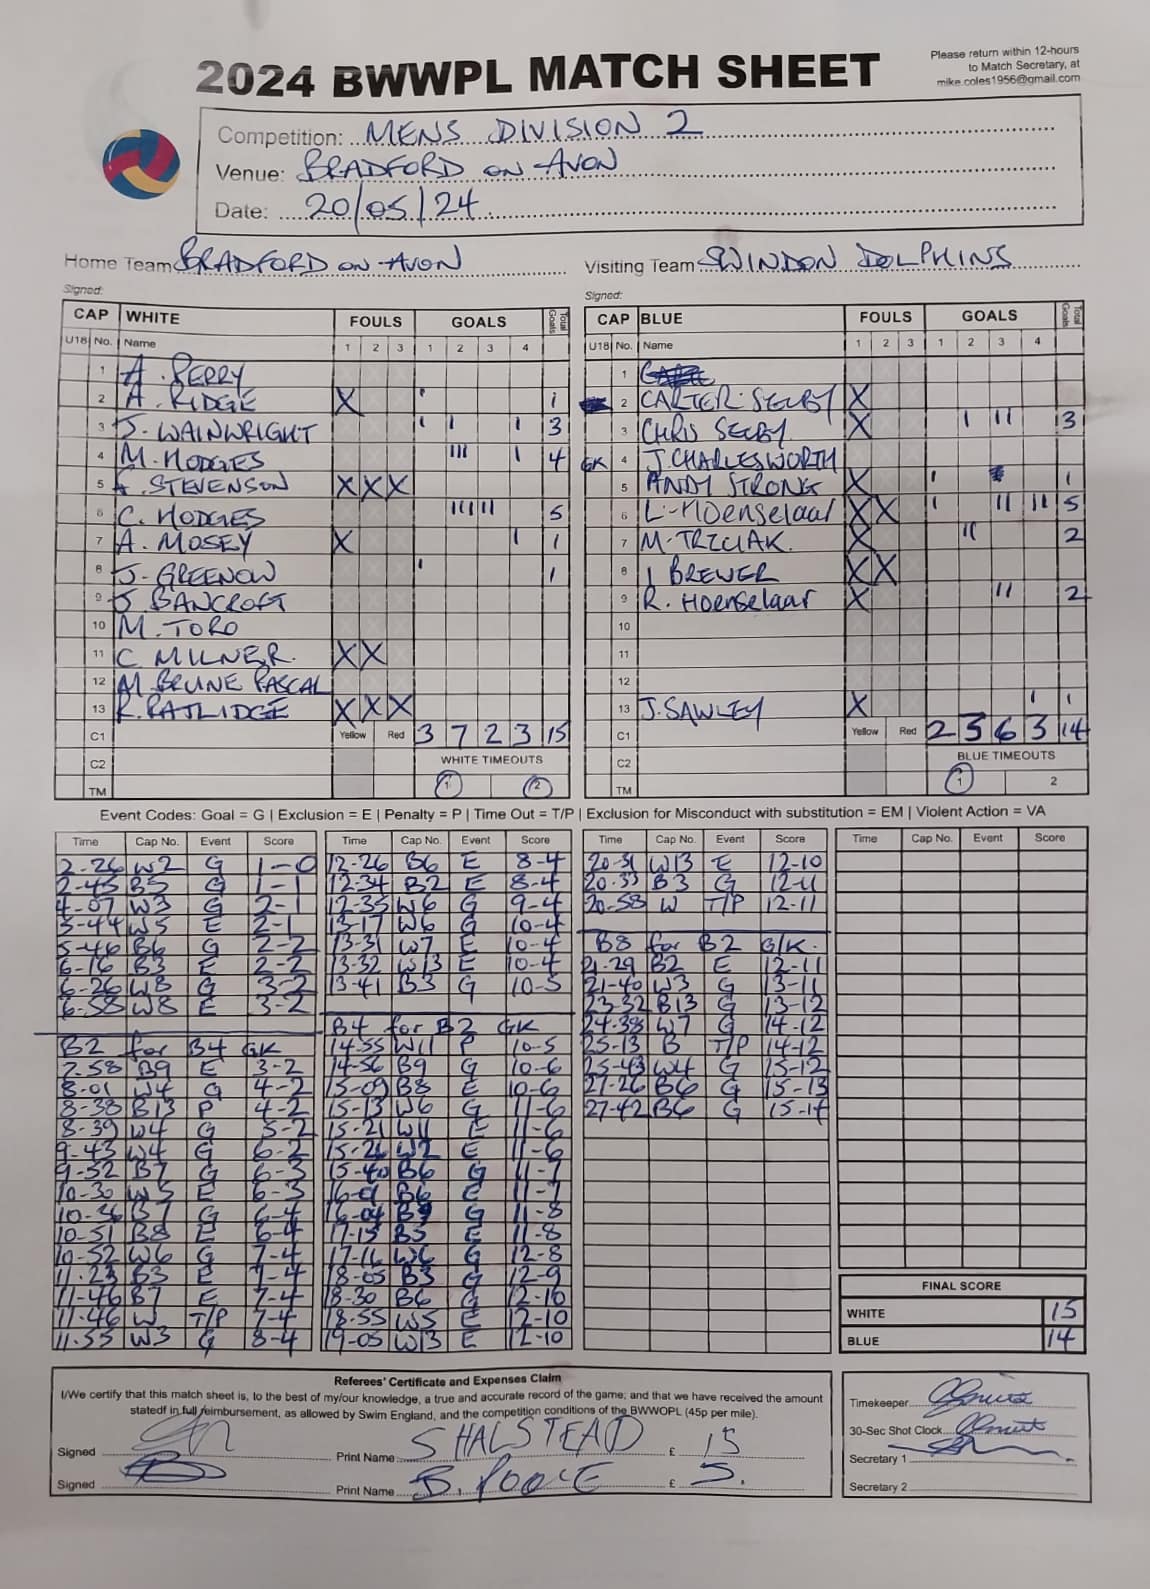 2024 BWWPL MATCH SHEET
Please return within 12-hours
to Match Secretary, at
mike.coles1956@gmail.com
Competition: MENS DIVISION 2
Venue: BRADFORD ON-AVON
Date: 20/05/24
Home Team BRADFORD ON-AVON
Visiting Team SWINDON DOLPHINS
Signed: Signed:
CAP WHITE FOULS GOALS Total Goals
U18 No. Name 1 2 3 1 2 3 4
1 A. PERRY
2 A. RIDGE X ' 1
3 J. WAINWRIGHT ' ' ' 3
4 M. HODGES ||| | 4
5 A. STEVENSON X X X
6 C. HODGES ||||| 5
7 A. MOSEY X | 1
8 J. GREENOW ' 1
9 J BANCROFT
10 M. TORO
11 C MILNER. X X
12 M. BRUNE PASCAL
13 R. RATLIDGE X X X
C1 Yellow Red 3 7 2 3 15
C2 WHITE TIMEOUTS
TM 1 2
CAP BLUE FOULS GOALS Total Goals
U18 No. Name 1 2 3 1 2 3 4
1
2 CARTER SELBY X
3 CHRIS SELBY X | || 3
GK 4 J. CHARLESWORTH
5 ANDY STRONG X | 1
6 L. Hoenselaar X X | || || 5
7 M. TRZCIAK. X || 2
8 I BREWER X X
9 R. Hoenselaar X || 2
10
11
12
13 J. SAWLEY X | 1
C1 Yellow Red 2 3 6 3 14
C2 BLUE TIMEOUTS
TM 1 2
Event Codes: Goal = G | Exclusion = E | Penalty = P | Time Out = T/P | Exclusion for Misconduct with substitution = EM | Violent Action = VA
Time Cap No. Event Score
2-26 W2 G 1-0
2-45 B5 G 1-1
4-07 W3 G 2-1
5-44 W5 E 2-1
5-46 B6 G 2-2
6-16 B3 E 2-2
6-26 W8 G 3-2
6-58 W8 E 3-2
B2 for B4 GK
7-58 B9 E 3-2
8-01 W4 G 4-2
8-38 B13 P 4-2
8-39 W4 G 5-2
9-43 W4 G 6-2
9-52 B7 G 6-3
10-30 W5 E 6-3
10-36 B7 G 6-4
10-51 B8 E 6-4
10-52 W6 G 7-4
11-23 B3 E 7-4
11-46 B7 E 7-4
11-46 W T/P 7-4
11-55 W3 G 8-4
Time Cap No. Event Score
12-26 B6 E 8-4
12-34 B2 E 8-4
12-35 W6 G 9-4
13-17 W6 G 10-4
13-31 W7 E 10-4
13-32 W13 E 10-4
13-41 B3 G 10-5
B4 for B2 GK
14-55 W11 P 10-5
14-56 B9 G 10-6
15-09 B8 E 10-6
15-13 W6 G 11-6
15-21 W11 E 11-6
15-26 W2 E 11-6
15-40 B6 G 11-7
16-01 B6 E 11-7
16-04 B9 G 11-8
17-15 B5 E 11-8
17-16 W6 G 12-8
18-05 B3 G 12-9
18-30 B6 G 12-10
18-55 W5 E 12-10
19-05 W13 E 12-10
Time Cap No. Event Score
20-31 W13 E 12-10
20-33 B3 G 12-11
20-58 W T/P 12-11
B8 for B2 G/K.
21-29 B2 E 12-11
21-40 W3 G 13-11
23-32 B13 G 13-12
24-38 W7 G 14-12
25-13 B T/P 14-12
25-43 W4 G 15-12
27-26 B6 G 15-13
27-42 B6 G 15-14
Time Cap No. Event Score
FINAL SCORE
WHITE 15
BLUE 14
Referees' Certificate and Expenses Claim
I/We certify that this match sheet is, to the best of my/our knowledge, a true and accurate record of the game; and that we have received the amount
statedf in full reimbursement, as allowed by Swim England, and the competition conditions of the BWWOPL (45p per mile).
Signed Print Name S HALSTEAD £ 15
Signed Print Name B. POOLE £ 5.
Timekeeper
30-Sec Shot Clock
Secretary 1
Secretary 2